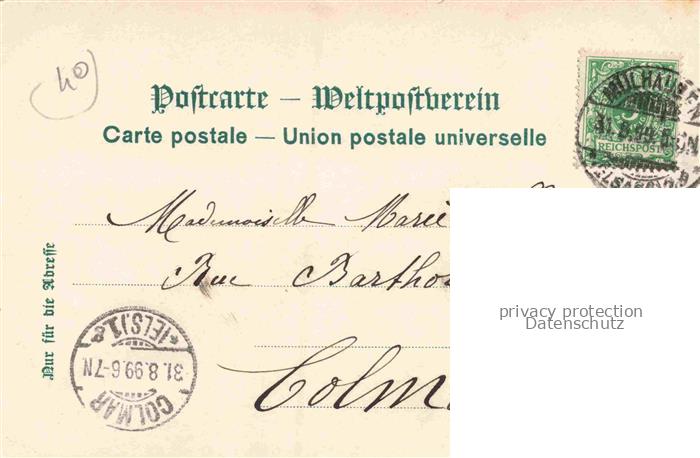 40
Postcarte – Weltpostverein
Carte postale – Union postale universelle
5
REICHSPOST
MÜLHAUSEN
Mademoiselle Marie
Rue Bartho
Colm
Nur für die Adresse
COLMAR
31.8.99.6-7N
*(ELS.)1.e
privacy protection
Datenschutz